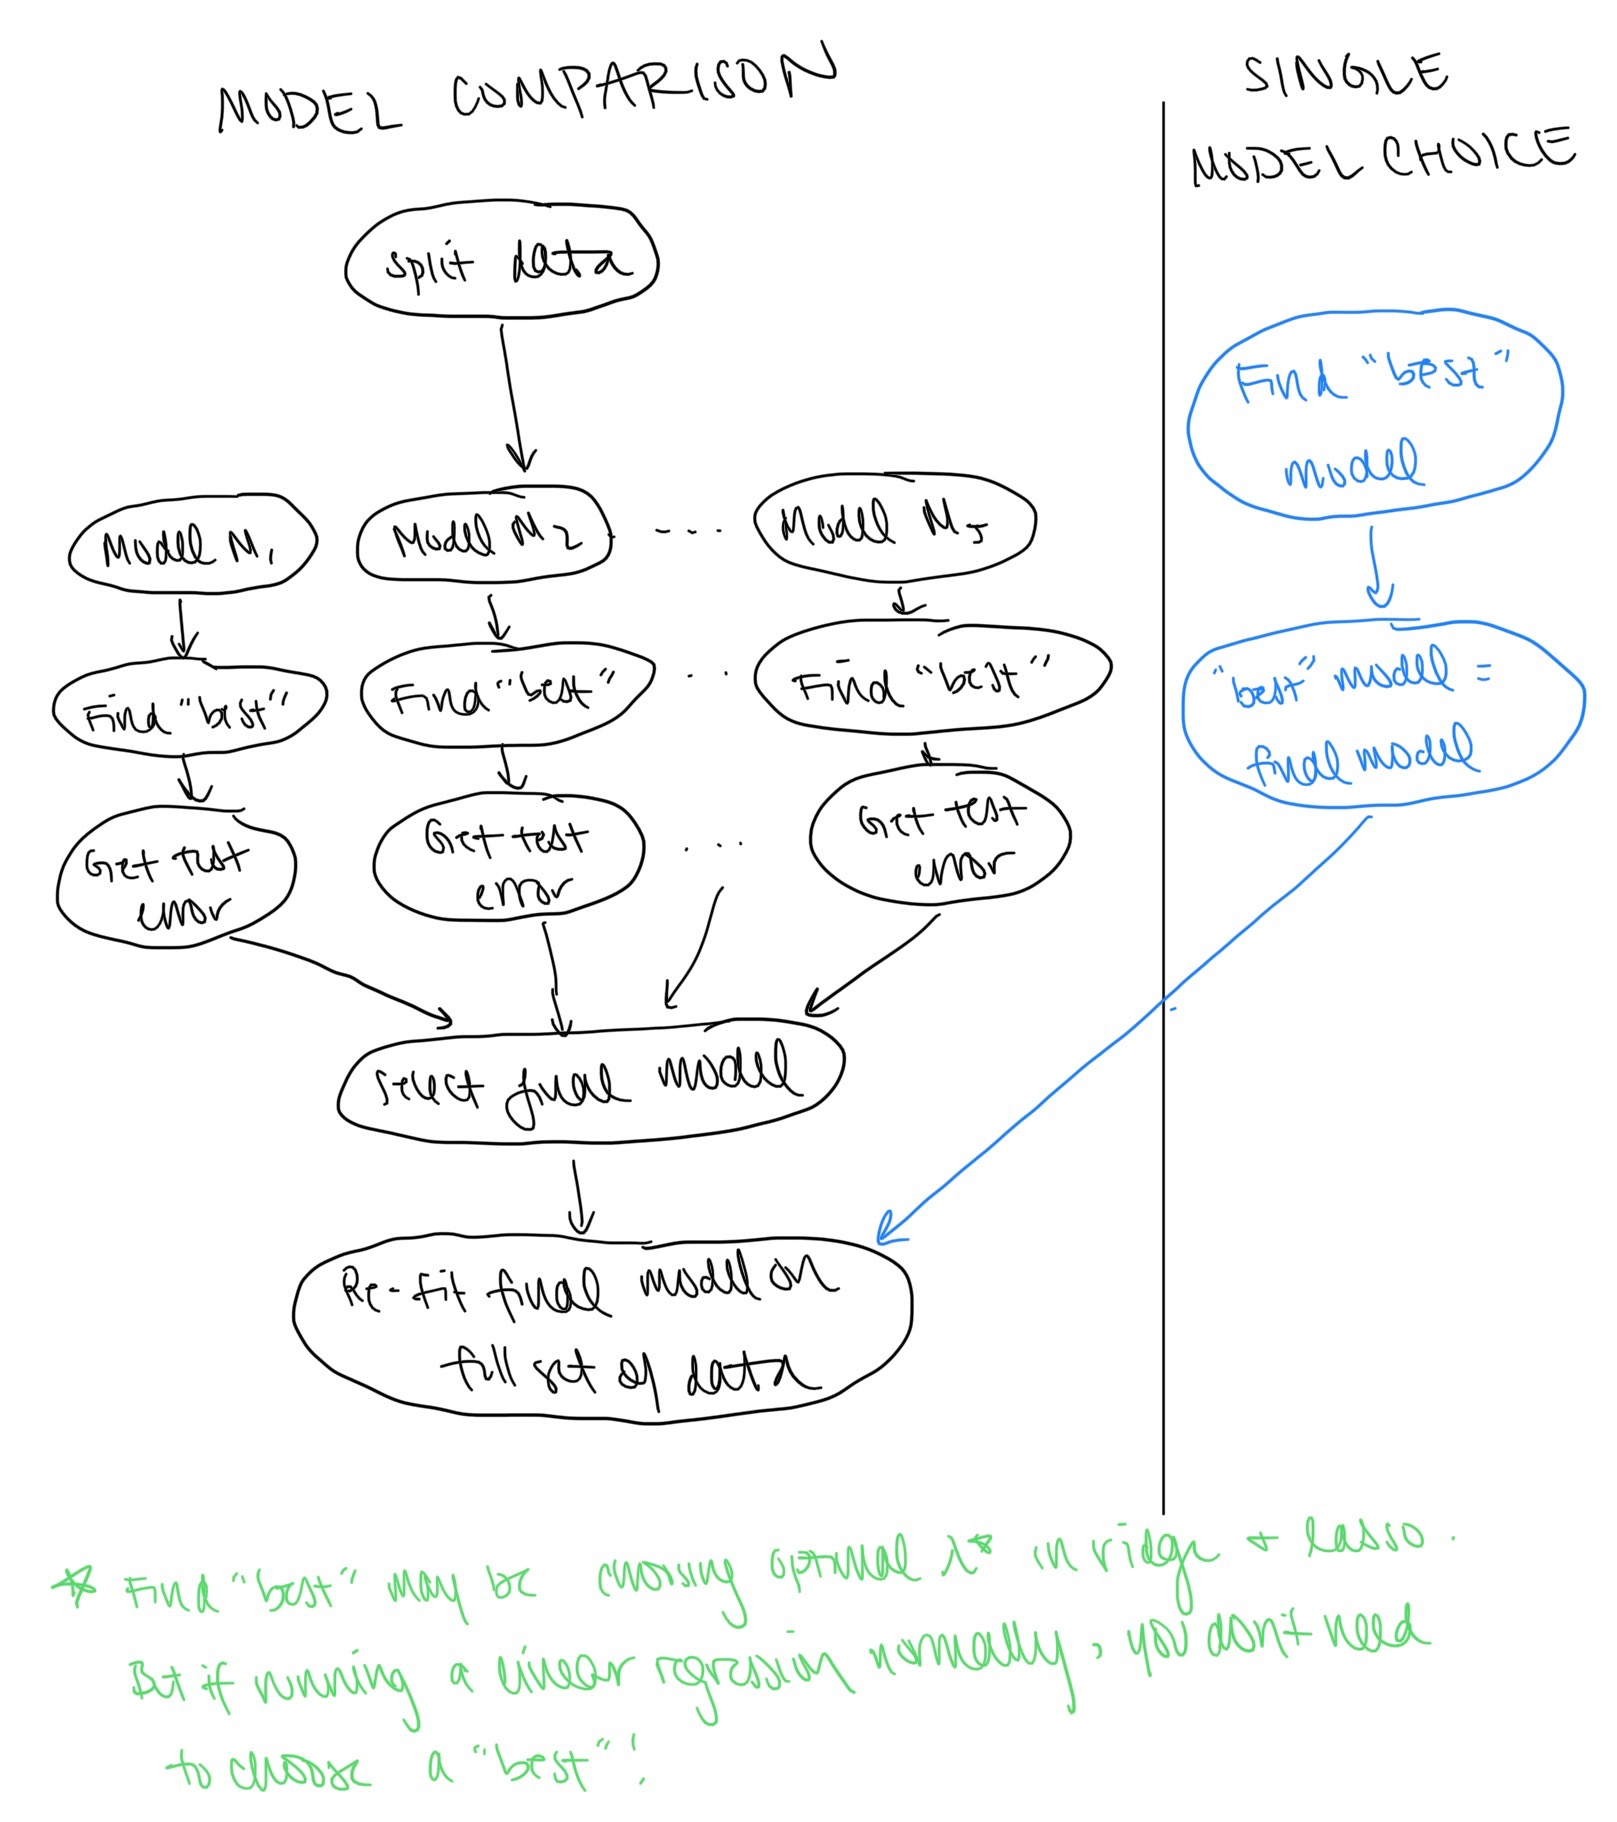 MODEL COMPARISON
SINGLE
MODEL CHOICE
split data
Model M1
Model M2
...
Model MJ
Find "best"
Find "best"
...
Find "best"
Get test
error
Get test
error
...
Get test
error
select final model
Re-fit final model on
full set of data
Find "best"
model
"best" model =
final model
* Find "best" may be choosing optimal λ* in ridge + lasso.
But if running a linear regression normally, you don't need
to choose a "best"!